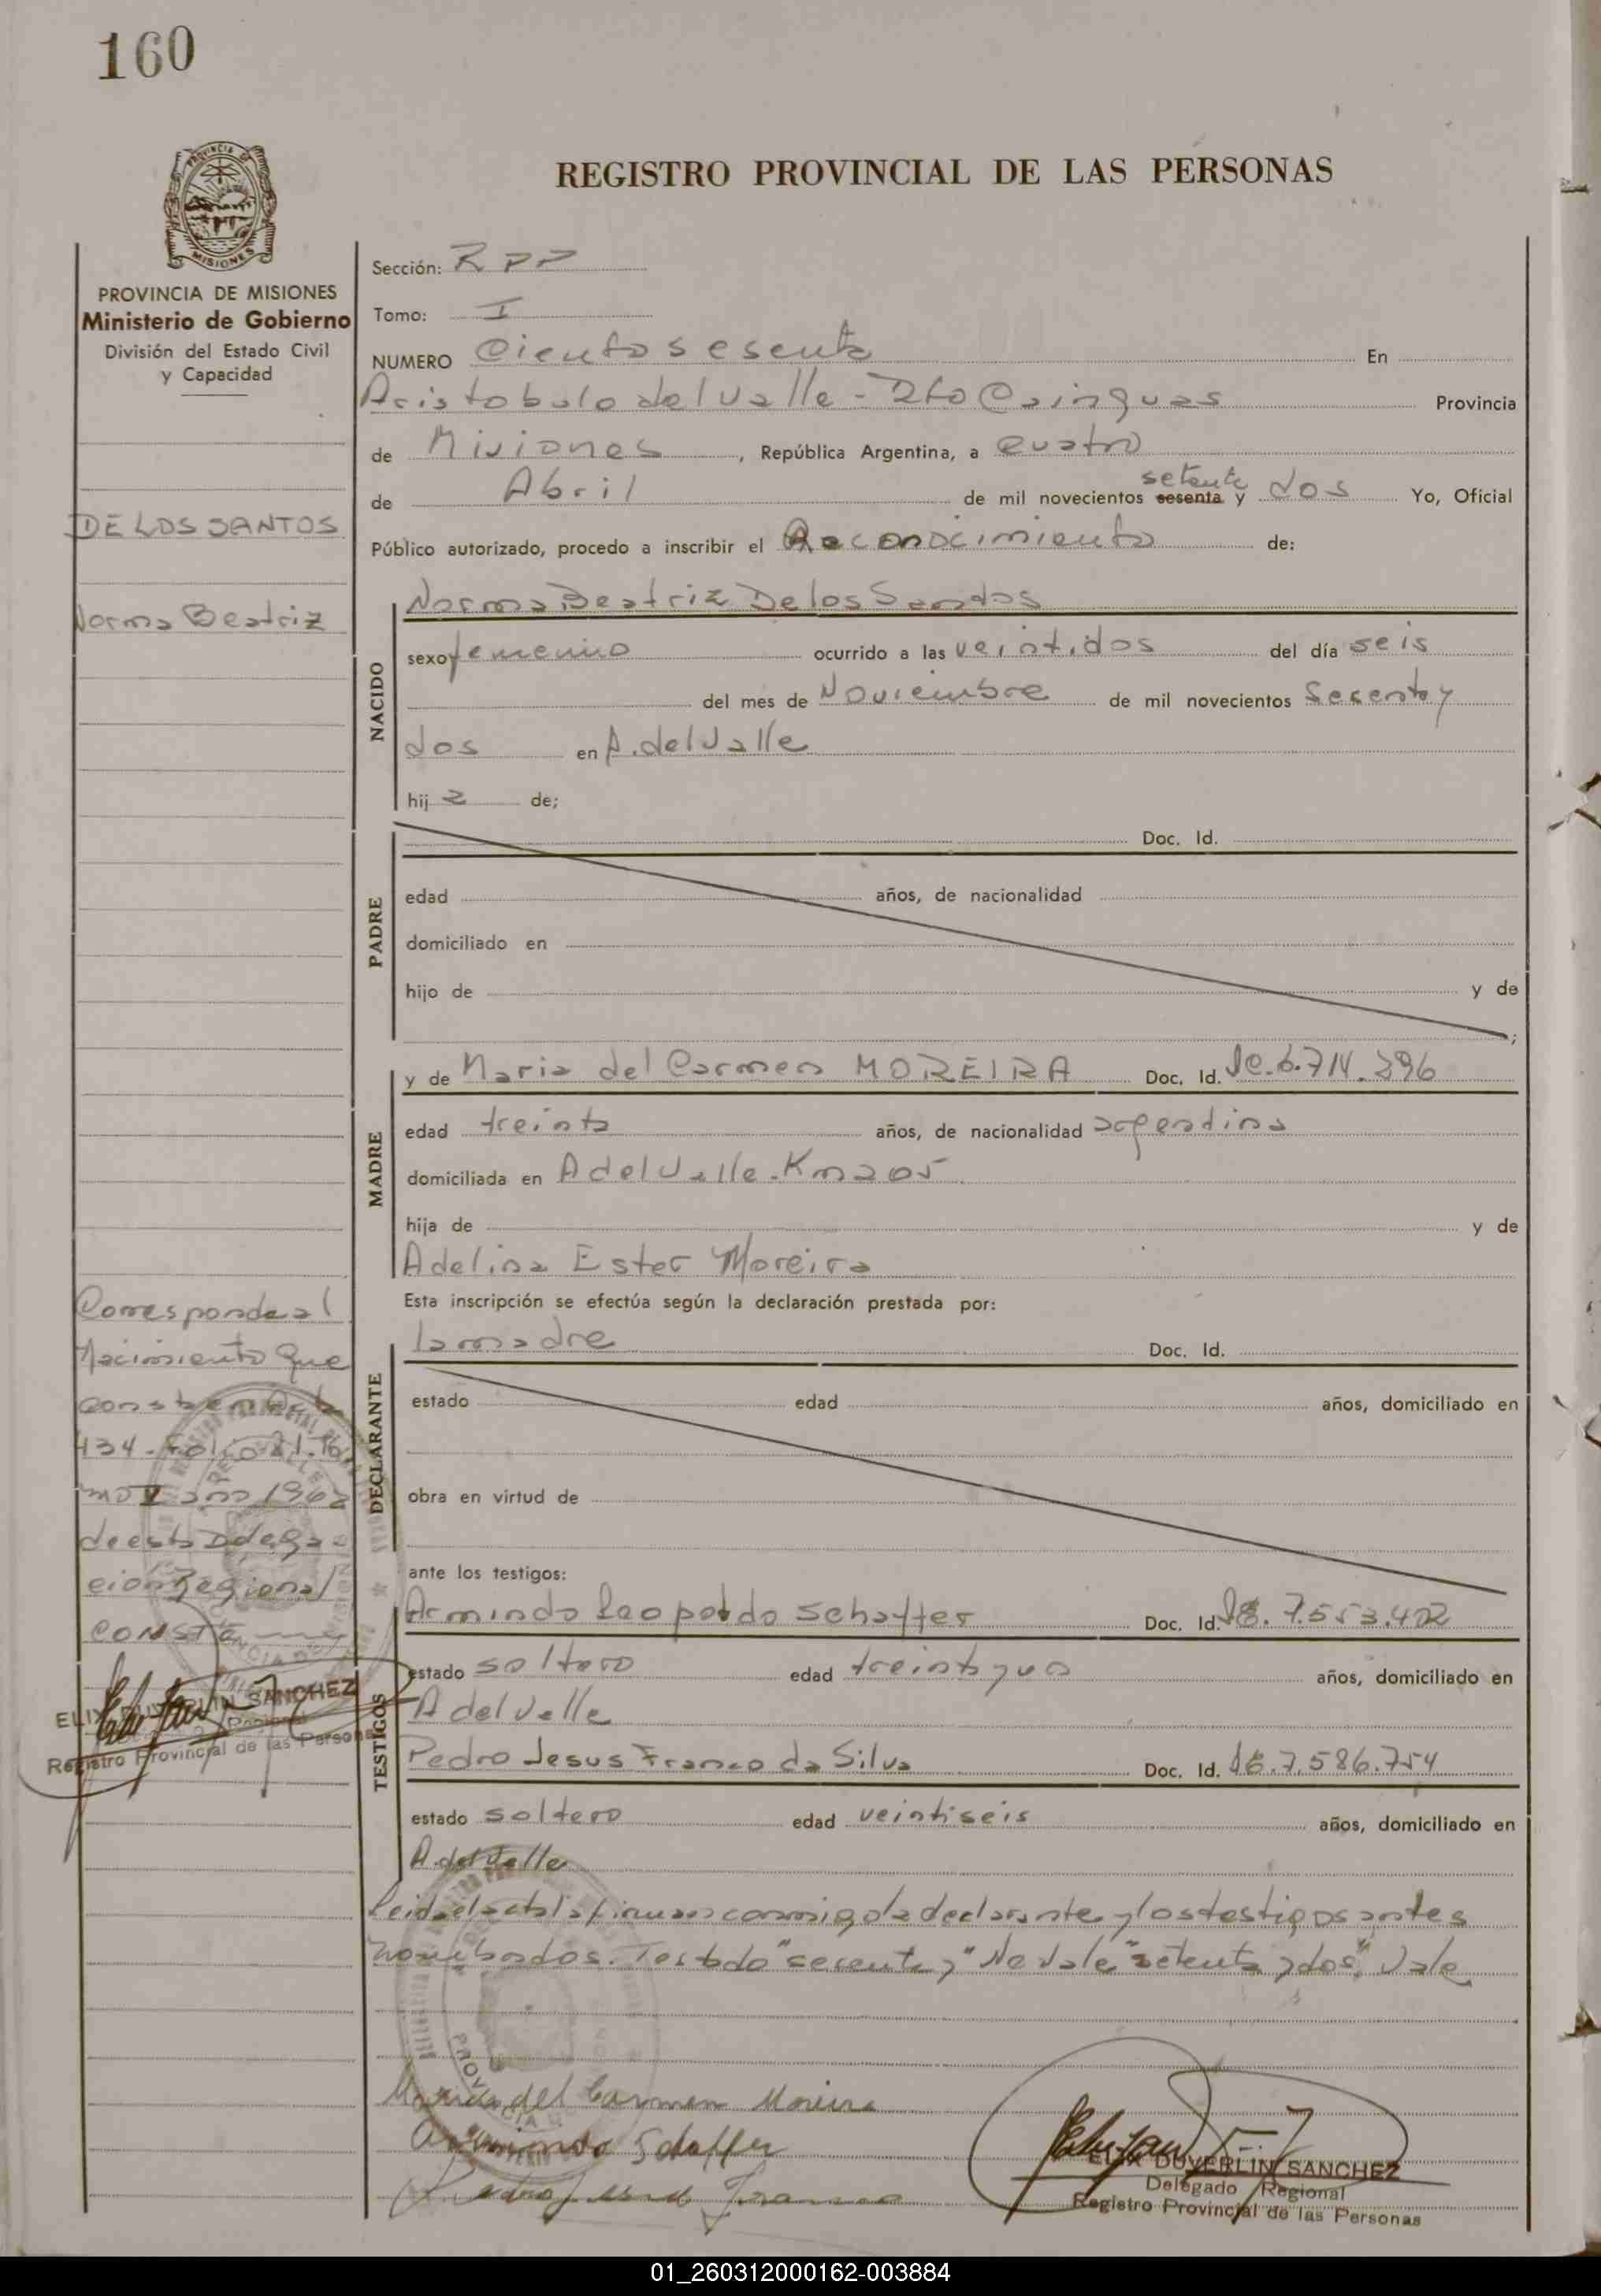 160
PROVINCIA DE MISIONES
Ministerio de Gobierno
División del Estado Civil
y Capacidad
DE LOS SANTOS
Norma Beatriz
Corresponde al
Nacimiento que
consta en Acta
434 - Folio 21. To
mo I año 1962
de esta Delega-
ción Regional
CONSTE
ELIX DUVERLIN SANCHEZ
Registro Provincial de las Personas
REGISTRO PROVINCIAL DE LAS PERSONAS
Sección: RPP
Tomo: I
NUMERO Ciento sesenta En
Aristobulo del Valle - Dto Cainguas Provincia
de Misiones, República Argentina, a cuatro
setenta
de Abril de mil novecientos sesenta y dos Yo, Oficial
Público autorizado, procedo a inscribir el Reconocimiento de:
NACIDO
Norma Beatriz De los Santos
sexo femenino ocurrido a las veintidos del día seis
del mes de Noviembre de mil novecientos Sesenta y
dos en A. del Valle
hij a de;
PADRE
Doc. Id.
edad años, de nacionalidad
domiciliado en
hijo de y de
;
MADRE
y de Maria del Carmen MOREIRA Doc. Id. 6.714.296
edad treinta años, de nacionalidad argentina
domiciliada en A del Valle - Km 205
hija de y de
Adelina Ester Moreira
Esta inscripción se efectúa según la declaración prestada por:
DECLARANTE
la madre Doc. Id.
estado edad años, domiciliado en
obra en virtud de
ante los testigos:
TESTIGOS
Armindo Leopoldo Schaffer Doc. Id. 7.553.402
estado soltero edad treinta y un años, domiciliado en
A del Valle
Pedro Jesus Franco da Silva Doc. Id. 7.586.754
estado soltero edad veintiseis años, domiciliado en
A. del Valle
Leida el acta la firman conmigo la declarante y los testigos antes
nombrados. Testado "sesenta y" No vale "setenta y dos", Vale
Maria del Carmen Moreira
Armindo Schaffer
Pedro Jesus Franco
ELIX DUVERLIN SANCHEZ
Delegado Regional
Registro Provincial de las Personas
01_260312000162-003884